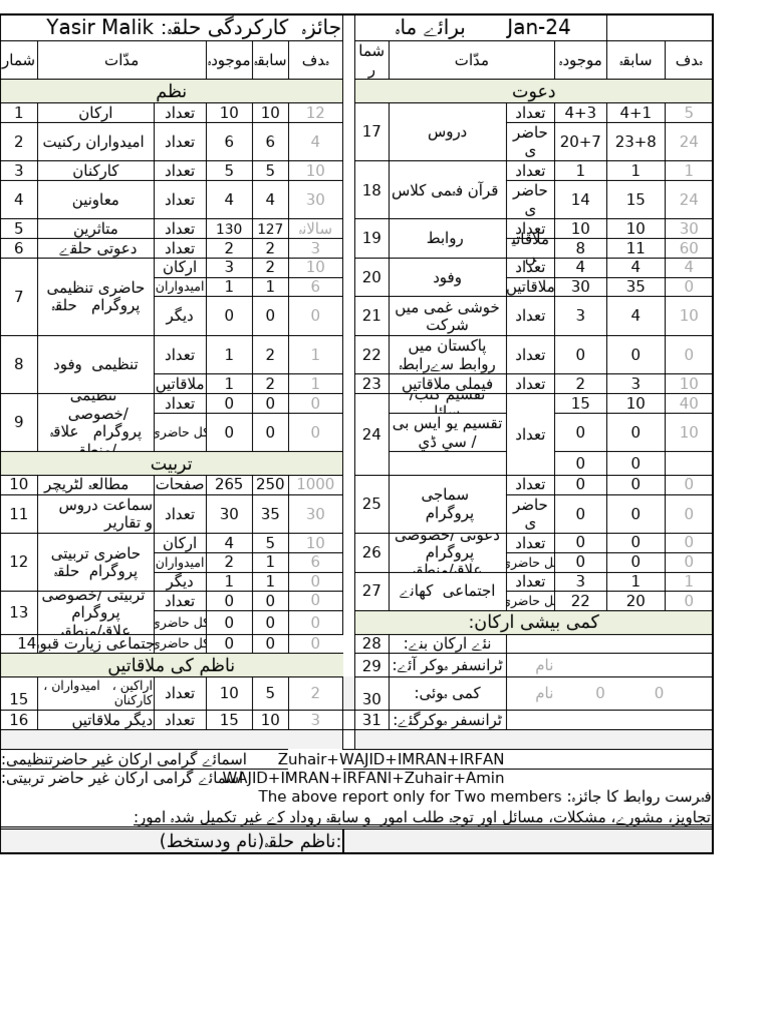 جائزہ کارکردگی حلقہ: Yasir Malik
برائے ماہ Jan-24
شمار مدّات موجودہ سابقہ ہدف
شمار مدّات موجودہ سابقہ ہدف
نظم
1 ارکان تعداد 10 10 12
2 امیدواران رکنیت تعداد 6 6 4
3 کارکنان تعداد 5 5 10
4 معاونین تعداد 4 4 30
5 متاثرین تعداد 130 127 سالانہ
6 دعوتی حلقے تعداد 2 2 3
7 حاضری تنظیمی پروگرام حلقہ ارکان 3 2 10
امیدواران 1 1 6
دیگر 0 0 0
8 تنظیمی وفود تعداد 1 2 1
ملاقاتیں 1 2 1
9 تنظیمی /خصوصی پروگرام علاقہ /منطقہ تعداد 0 0 0
کل حاضری 0 0 0
تربیت
10 مطالعہ لٹریچر صفحات 265 250 1000
11 سماعت دروس و تقاریر تعداد 30 35 30
12 حاضری تربیتی پروگرام حلقہ ارکان 4 5 10
امیدواران 2 1 6
دیگر 1 1 0
13 تربیتی /خصوصی پروگرام علاقہ/منطقہ تعداد 0 0 0
کل حاضری 0 0 0
14 اجتماعی زیارت قبور کل حاضری 0 0 0
ناظم کی ملاقاتیں
15 اراکین ، امیدواران ، کارکنان تعداد 10 5 2
16 دیگر ملاقاتیں تعداد 15 10 3
دعوت
17 دروس تعداد 4+3 4+1 5
حاضری 20+7 23+8 24
18 قرآن فہمی کلاس تعداد 1 1 1
حاضری 14 15 24
19 روابط تعداد 10 10 30
ملاقاتیں 8 11 60
20 وفود تعداد 4 4 4
ملاقاتیں 30 35 0
21 خوشی غمی میں شرکت تعداد 3 4 10
22 پاکستان میں روابط سےرابطہ تعداد 0 0 0
23 فیملی ملاقاتیں تعداد 2 3 10
24 تقسیم کتب/ رسائل تعداد 15 10 40
تقسیم یو ایس بی / سي ڈي 0 0 10
0 0
25 سماجی پروگرام تعداد 0 0 0
حاضری 0 0 0
26 دعوتی /خصوصی پروگرام علاقہ/منطقہ تعداد 0 0 0
کل حاضری 0 0 0
27 اجتماعی کھانے تعداد 3 1 1
کل حاضری 22 20 0
کمی بیشی ارکان:
28 نئے ارکان بنے:
29 ٹرانسفر ہوکر آئے: نام
30 کمی ہوئی: نام 0 0
31 ٹرانسفر ہوکرگئے:
اسمائے گرامی ارکان غیر حاضرتنظیمی: Zuhair+WAJID+IMRAN+IRFAN
اسمائے گرامی ارکان غیر حاضر تربیتی: WAJID+IMRAN+IRFANI+Zuhair+Amin
فہرست روابط کا جائزہ: The above report only for Two members
تجاویز، مشورے، مشکلات، مسائل اور توجہ طلب امور و سابقہ روداد کے غیر تکمیل شدہ امور:
ناظم حلقہ(نام ودستخط):